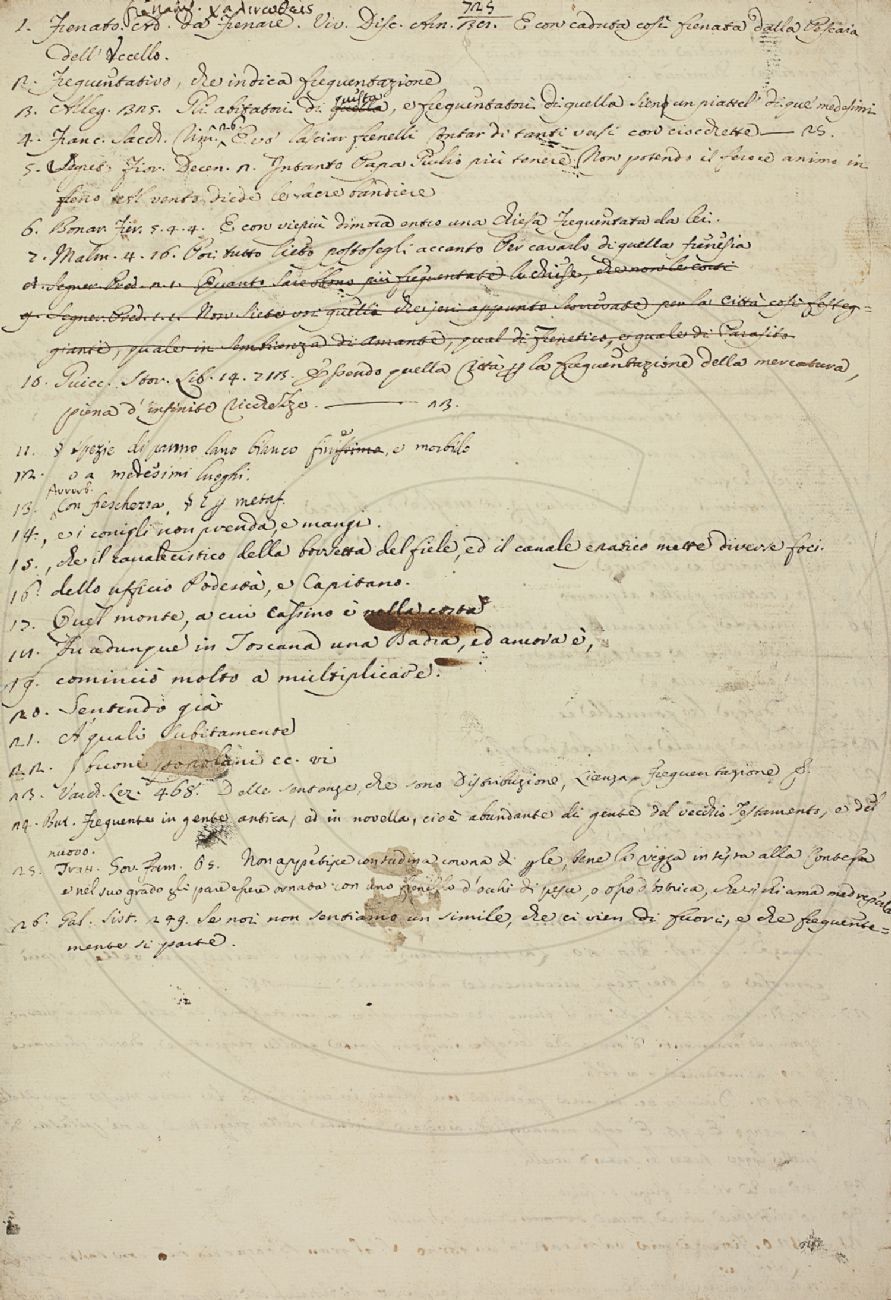 1. Frenato. Add. da Frenare. Viv. Disc. Arn. E con caduta così frenata dalla Pescaia
dell'Uccello.
2. Frequentativo, che indica frequentazione
3. Alleg. 325. Gli abitatori di questa, e frequentatori di quella sien un piattel di que' medesimi
4. Franc. Sacch. Rim. 26. E vo' lasciar frenelli contar di tanti vasi con ciocchette — 25.
5. Segret. Fior. Decen. 2. Intanto Papa Giulio più tenere Non potendo il feroce animo in
freno al vento diede le sacre bandiere
6. Bonar. Fier. 5. 4. 4. E con viepiù dimora entro una chiesa Frequentata da lei.
7. Malm. 4. 16. Poi tutto lieto postosegli accanto Per cavarlo di quella frenesia
8. Segner. Pred. 2. 1. Quanto sarebbono più frequentate le chiese, che non le corti
9. Segner. Pred. 1. 1. Non siete voi quello che jeri appunto scorrevate per la Città così festeg=
giante, quale in sembianza di Amante, qual di Frenetico, e quale di Parasito
10. Guicc. Stor. Lib. 14. 713. Essendo quella Città p la frequentazione della mercatura,
piena d'infinite ricchezze. — 23.
11. § spezie di panno lano bianco fine, e morbido
12. o a medesimi luoghi.
13. Avverb. Con freschezza, § E p metaf.
14. , e i conigli non prenda, e mangi.
15. , che il canale cistico della borsetta del fiele, ed il canale epatico mette diverse foci.
16. dello ufficio Podestà, e Capitano.
17. Quel monte, a cui Cassino è nella costa
18. Fu adunque in Toscana una Badia, ed ancora è,
19. cominciò molto a multiplicare.
20. Sentendo già
21. A' quali subitamente
22. I buoni popolani ec. vi
23. Varch. Lez. 468. Delle sentenze, che sono Distribuzione, Licenza, Frequentazione &.
24. But. Frequente in gente antica, ed in novella, cioè abundante di gente del vecchio Testamento, e del
nuovo.
25. Tratt. Gov. Fam. 65. Non appetisce contadina corona di perle, bene la vegga in testa alla Contessa
e nel suo grado gli pare essere ornata con uno frenello d'occhi di pesce, o osso d'ostrica, che si chiama madreperla
26. Gal. Sist. 249. Se noi non sentiamo un simile, che ci vien di fuori, e che frequente=
mente si parte.